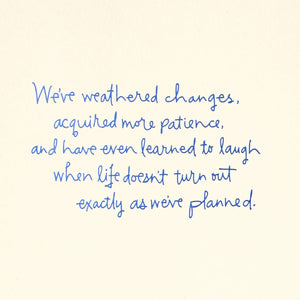 We've weathered changes,
acquired more patience,
and have even learned to laugh
when life doesn't turn out
exactly as we've planned.